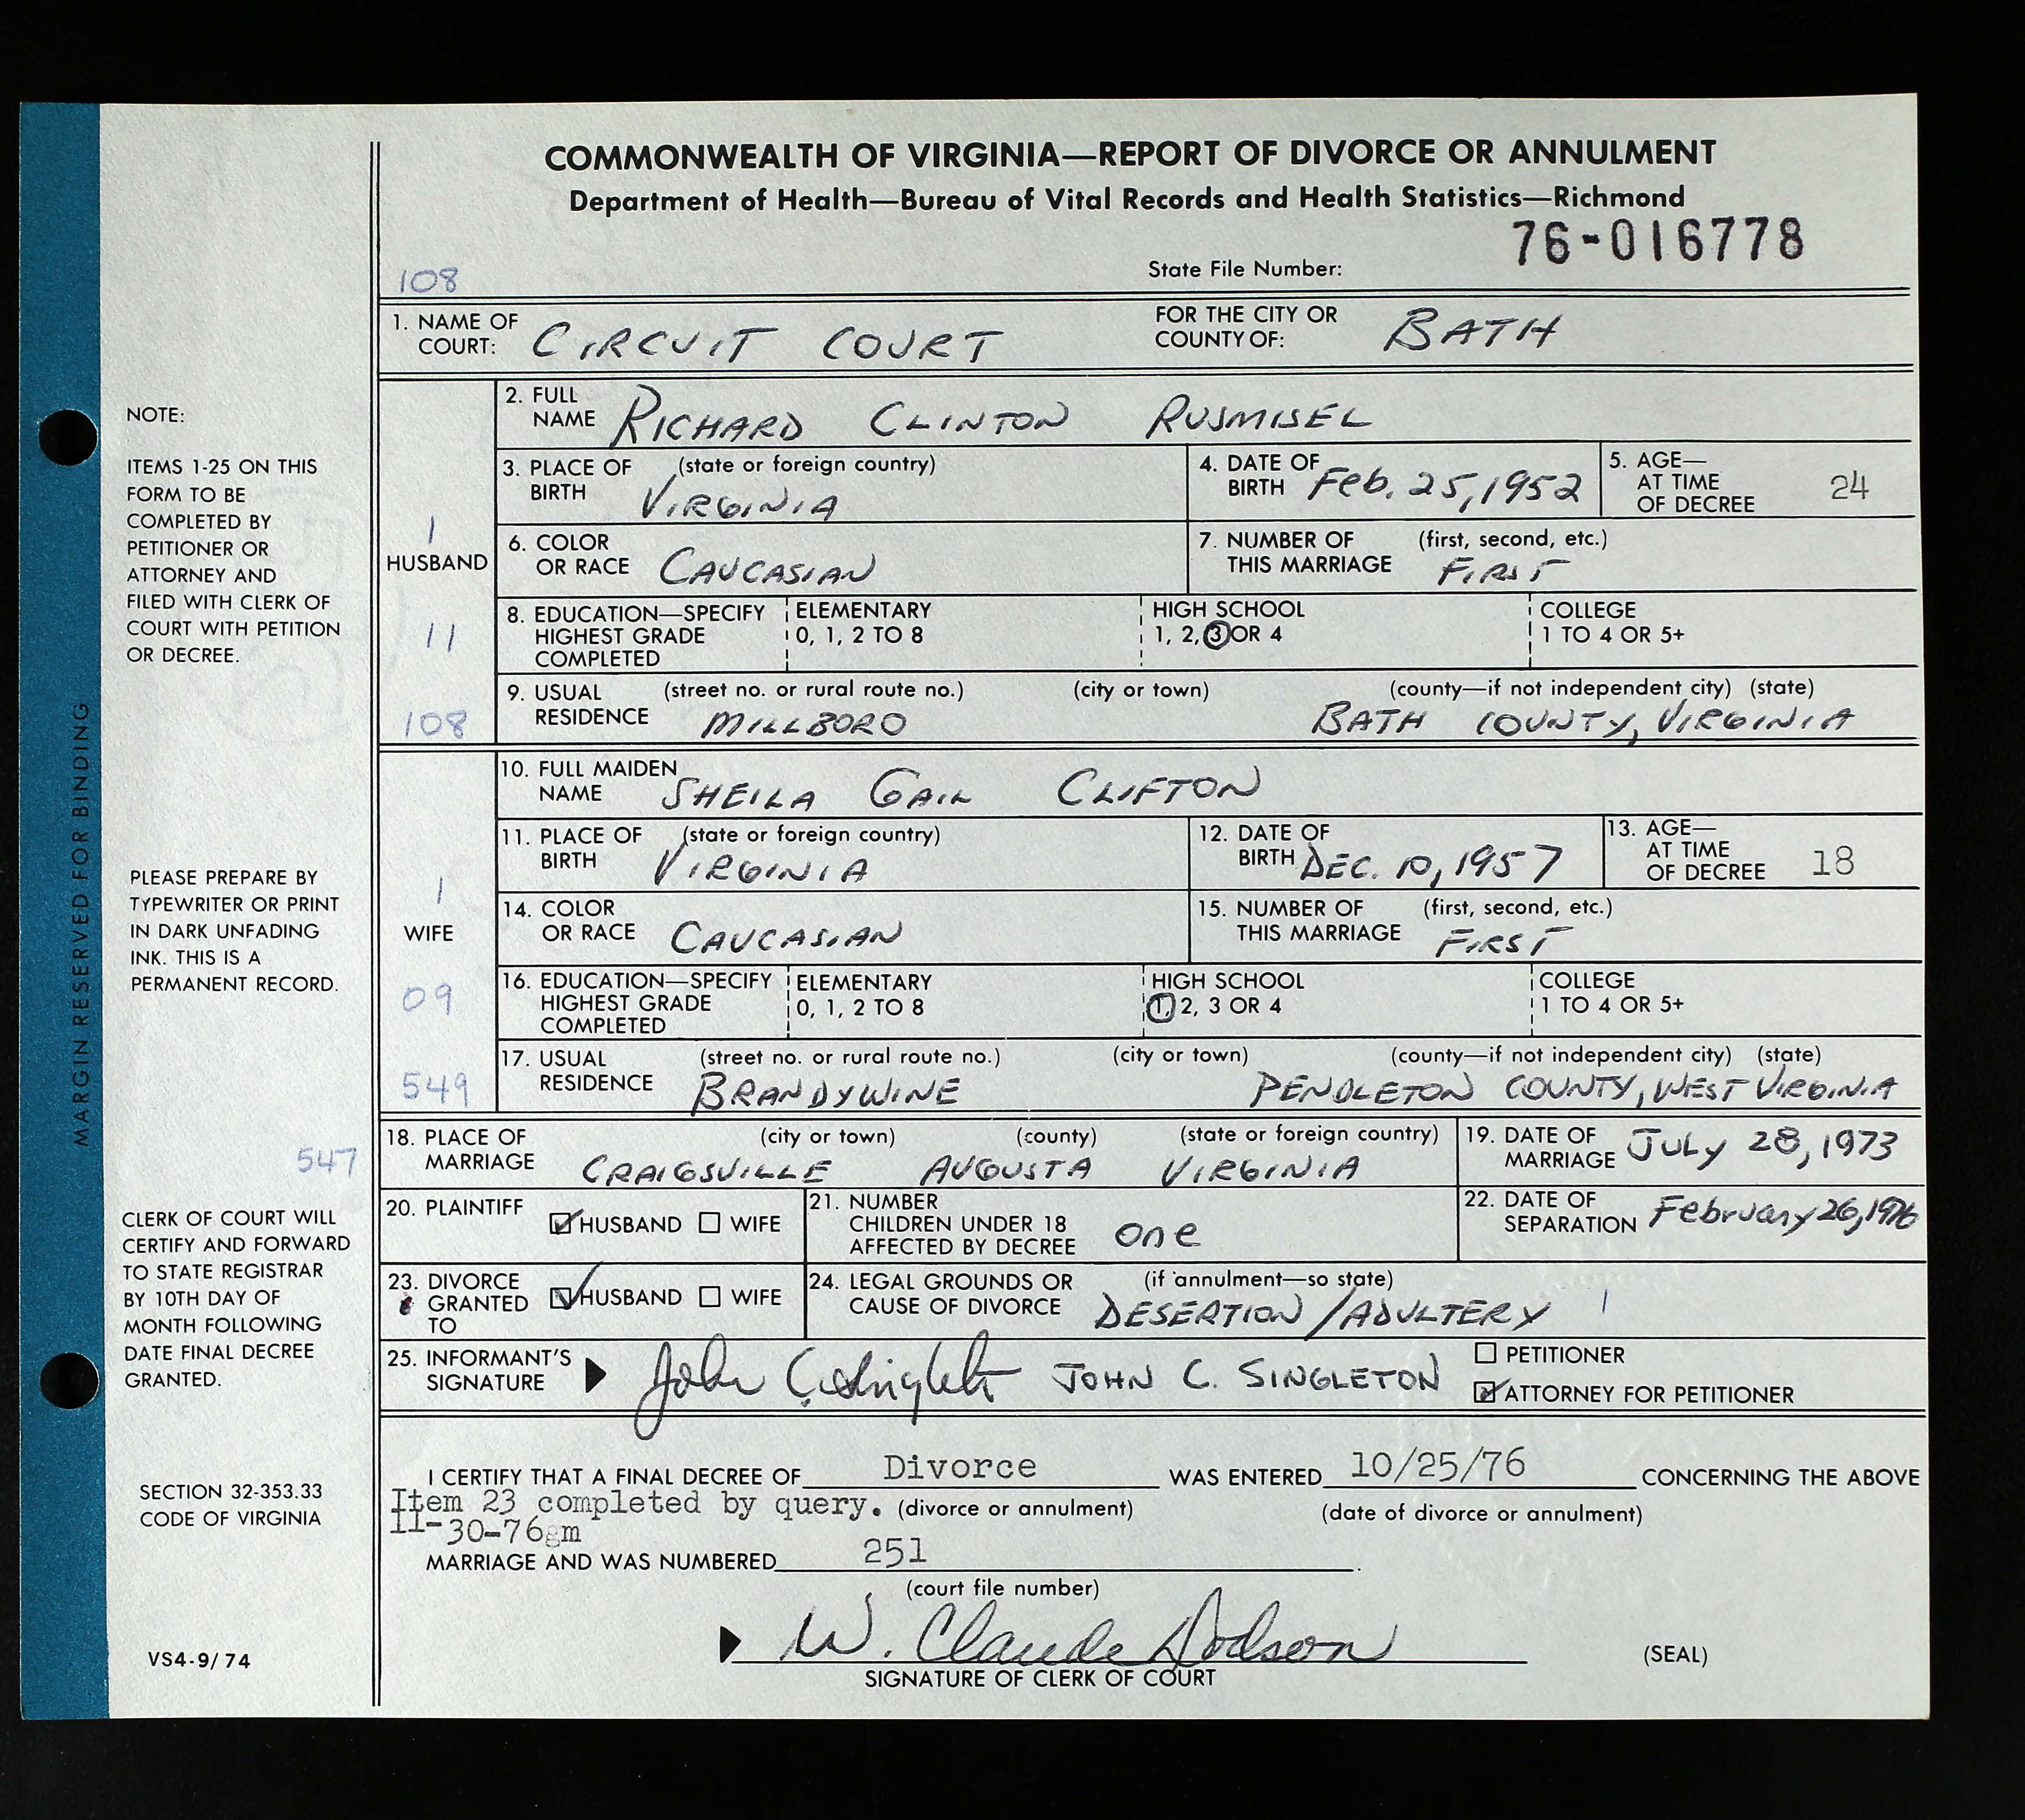 COMMONWEALTH OF VIRGINIA—REPORT OF DIVORCE OR ANNULMENT
Department of Health—Bureau of Vital Records and Health Statistics—Richmond
76-016778
State File Number:
108
1. NAME OF COURT: CIRCUIT COURT FOR THE CITY OR COUNTY OF: BATH
2. FULL NAME RICHARD CLINTON RUSMISEL
3. PLACE OF BIRTH (state or foreign country) VIRGINIA 4. DATE OF BIRTH Feb. 25, 1952 5. AGE— AT TIME OF DECREE 24
1
HUSBAND
6. COLOR OR RACE CAUCASIAN 7. NUMBER OF THIS MARRIAGE (first, second, etc.) FIRST
11
8. EDUCATION—SPECIFY HIGHEST GRADE COMPLETED ELEMENTARY 0, 1, 2 TO 8 HIGH SCHOOL 1, 2, 3 OR 4 COLLEGE 1 TO 4 OR 5+
108
9. USUAL RESIDENCE (street no. or rural route no.) (city or town) (county—if not independent city) (state)
MILLBORO BATH COUNTY, VIRGINIA
10. FULL MAIDEN NAME SHEILA GAIL CLIFTON
11. PLACE OF BIRTH (state or foreign country) VIRGINIA 12. DATE OF BIRTH DEC. 10, 1957 13. AGE— AT TIME OF DECREE 18
1
WIFE
14. COLOR OR RACE CAUCASIAN 15. NUMBER OF THIS MARRIAGE (first, second, etc.) FIRST
09
16. EDUCATION—SPECIFY HIGHEST GRADE COMPLETED ELEMENTARY 0, 1, 2 TO 8 HIGH SCHOOL 1, 2, 3 OR 4 COLLEGE 1 TO 4 OR 5+
549
17. USUAL RESIDENCE (street no. or rural route no.) (city or town) (county—if not independent city) (state)
BRANDYWINE PENDLETON COUNTY, WEST VIRGINIA
547
18. PLACE OF MARRIAGE (city or town) (county) (state or foreign country)
CRAIGSVILLE AUGUSTA VIRGINIA
19. DATE OF MARRIAGE JULY 28, 1973
20. PLAINTIFF HUSBAND WIFE
21. NUMBER CHILDREN UNDER 18 AFFECTED BY DECREE one
22. DATE OF SEPARATION February 26, 1976
23. DIVORCE GRANTED TO HUSBAND WIFE
24. LEGAL GROUNDS OR CAUSE OF DIVORCE (if annulment—so state) DESERTION / ADULTERY 1
25. INFORMANT'S SIGNATURE John C. Singleton JOHN C. SINGLETON
PETITIONER
ATTORNEY FOR PETITIONER
I CERTIFY THAT A FINAL DECREE OF Divorce WAS ENTERED 10/25/76 CONCERNING THE ABOVE
Item 23 completed by query. (divorce or annulment) (date of divorce or annulment)
11-30-76gm
MARRIAGE AND WAS NUMBERED 251.
(court file number)
W. Claude Dodson
SIGNATURE OF CLERK OF COURT
(SEAL)
NOTE:
ITEMS 1-25 ON THIS
FORM TO BE
COMPLETED BY
PETITIONER OR
ATTORNEY AND
FILED WITH CLERK OF
COURT WITH PETITION
OR DECREE.
PLEASE PREPARE BY
TYPEWRITER OR PRINT
IN DARK UNFADING
INK. THIS IS A
PERMANENT RECORD.
CLERK OF COURT WILL
CERTIFY AND FORWARD
TO STATE REGISTRAR
BY 10TH DAY OF
MONTH FOLLOWING
DATE FINAL DECREE
GRANTED.
SECTION 32-353.33
CODE OF VIRGINIA
VS4-9/74
MARGIN RESERVED FOR BINDING